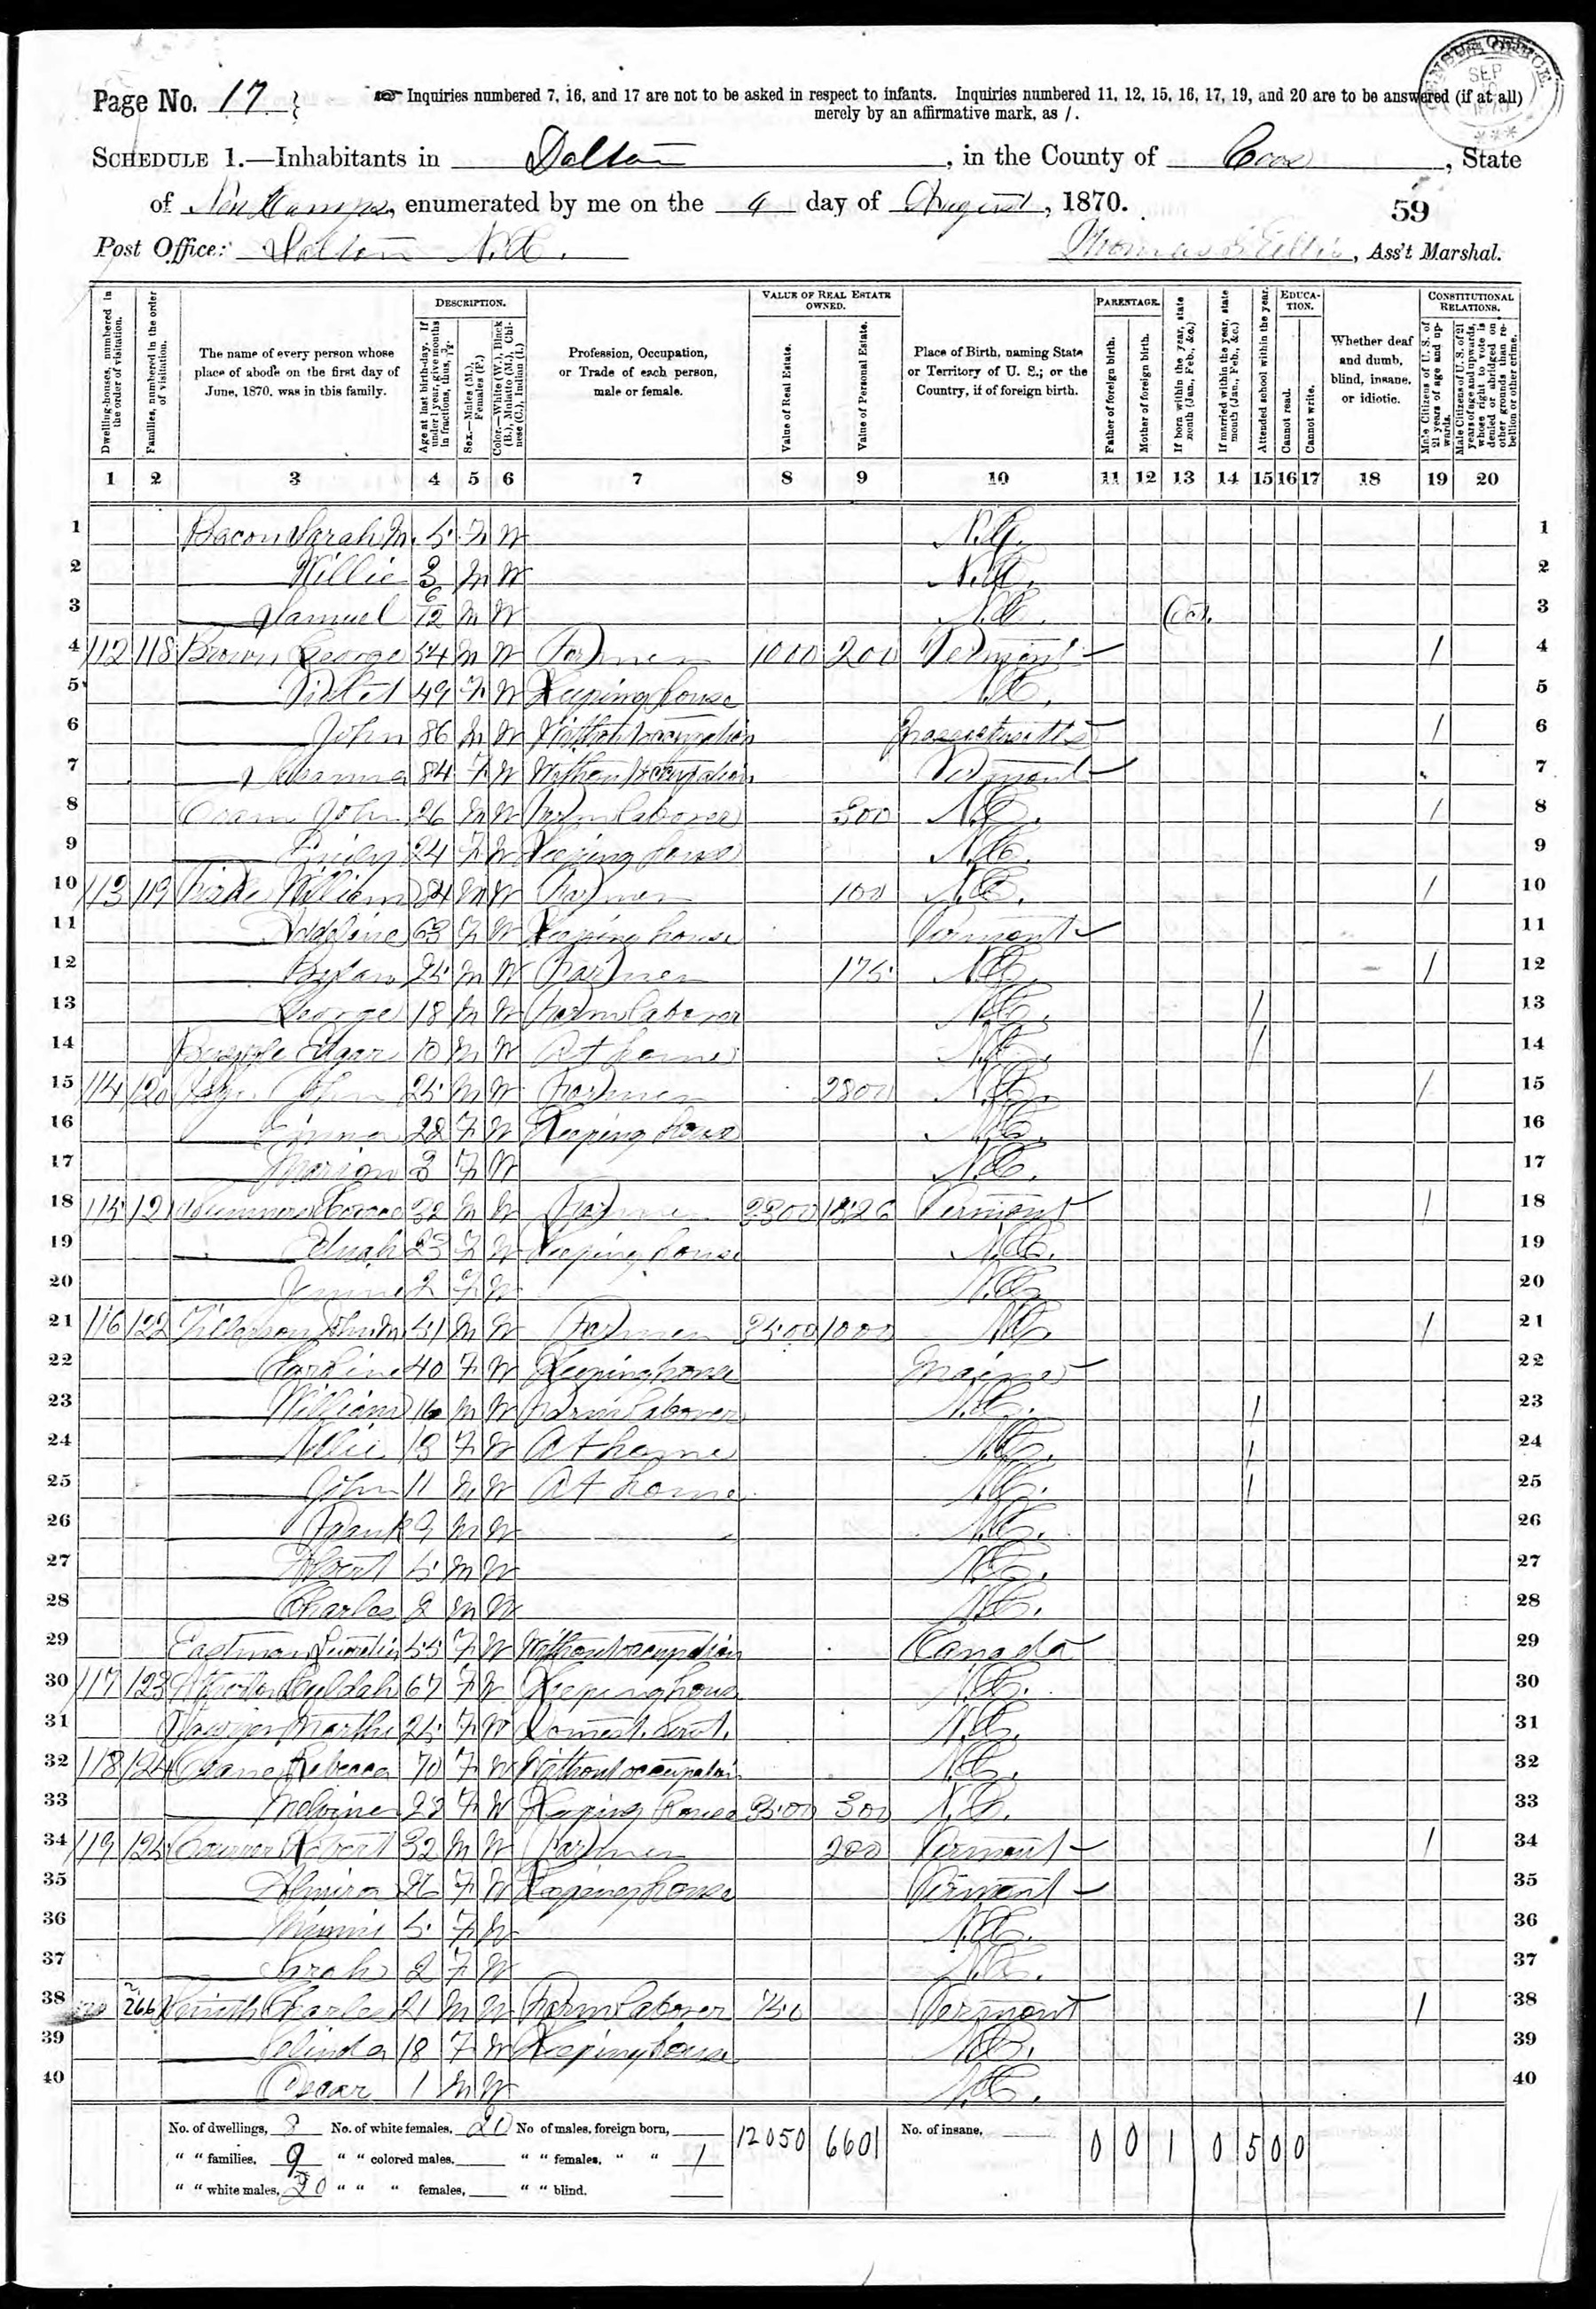 Page No. 17
Inquiries numbered 7, 16, and 17 are not to be asked in respect to infants. Inquiries numbered 11, 12, 15, 16, 17, 19, and 20 are to be answered (if at all)
merely by an affirmative mark, as /.
CENSUS OFFICE SEP
SCHEDULE 1.—Inhabitants in Dalton, in the County of Coos, State
of New Hamps, enumerated by me on the 4 day of August, 1870.
59
Post Office: Dalton N.H. Thomas, Ass't Marshal.
Dwelling-houses, numbered in the order of visitation.
Families, numbered in the order of visitation.
The name of every person whose place of abode on the first day of June, 1870, was in this family.
DESCRIPTION.
Age at last birth-day. If under 1 year, give months in fractions, thus, 3/12.
Sex.—Males (M.), Females (F.)
Color.—White (W.), Black (B.), Mulatto (M.), Chinese (C.), Indian (I.)
Profession, Occupation, or Trade of each person, male or female.
VALUE OF REAL ESTATE OWNED.
Value of Real Estate.
Value of Personal Estate.
Place of Birth, naming State or Territory of U. S.; or the Country, if of foreign birth.
PARENTAGE.
Father of foreign birth.
Mother of foreign birth.
If born within the year, state month (Jan., Feb., &c.)
If married within the year, state month (Jan., Feb., &c.)
Attended school within the year.
EDUCATION.
Cannot read.
Cannot write.
Whether deaf and dumb, blind, insane, or idiotic.
CONSTITUTIONAL RELATIONS.
Male Citizens of U. S. of 21 years of age and upwards.
Male Citizens of U. S. of 21 years of age and upwards, whose right to vote is denied or abridged on other grounds than rebellion or other crime.
1 2 3 4 5 6 7 8 9 10 11 12 13 14 15 16 17 18 19 20
1 Bacon Sarah M. 5 F W N.H. 1
2 Willie 3 M W N.H. 2
3 Samuel 6/12 M W N.H. 3
4 112 118 Brown George 54 M W Farmer 1000 200 Vermont / 4
5 49 F W Keeping house N.H. 5
6 John 86 M W Without occupation Massachusetts / 6
7 Susanna 84 F W Without occupation Vermont 7
8 John 26 M W Farm laborer 300 N.H. / 8
9 Emily 24 F W Keeping house N.H. 9
10 113 119 William M W Farmer 100 N.H. / 10
11 Adeline 63 F W Keeping house Vermont 11
12 25 M W Farmer 175 N.H. / 12
13 George 18 M W Farm laborer N.H. / 13
14 Edgar 10 M W At home N.H. / 14
15 114 120 John 25 M W Farmer 2800 N.H. / 15
16 Emma 22 F W Keeping house N.H. 16
17 Marion 3 F W N.H. 17
18 115 121 32 M W Farmer Vermont / 18
19 23 F W Keeping house N.H. 19
20 Jennie 2 F W N.H. 20
21 116 122 John M. 51 M W Farmer 3500 1000 N.H. / 21
22 Caroline 40 F W Keeping house Maine 22
23 William 16 M W Farm laborer N.H. / 23
24 Nellie 13 F W At home N.H. / 24
25 John 11 M W At home N.H. / 25
26 Frank 9 M W N.H. 26
27 Albert 5 M W N.H. 27
28 Charles 2 M W N.H. 28
29 Eastman 55 F W Without occupation Canada 29
30 117 123 Huldah 67 F W Keeping house N.H. 30
31 Sawyer Martha 25 F W Domest. Servt. N.H. 31
32 118 124 Crane Rebecca 70 F W Without occupation N.H. 32
33 F W Keeping house 300 N.H. 33
34 119 125 Robert 32 M W Farmer 200 Vermont / 34
35 Almira F W Keeping house Vermont 35
36 Minnie 5 F W N.H. 36
37 Sarah 2 F W N.H. 37
38 Smith Charles 21 M W Farm laborer 750 Vermont / 38
39 18 F W Keeping house N.H. 39
40 Oscar 1 M W N.H. 40
No. of dwellings, 8 No. of white females, 20 No of males, foreign born, 12050 6601 No. of insane, 0 0 1 0 5 0 0
" " families, 9 " " colored males, " " females, " " 1
" " white males, 20 " " " females, " " blind.